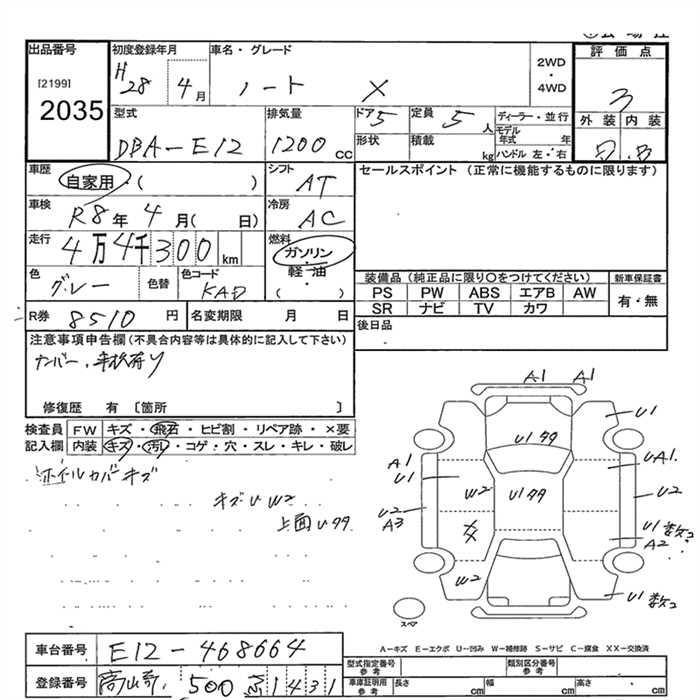 出品番号 初度登録年月 車名・グレード 2WD・4WD 評価点
[2199]
2035
H28 4月 ノート X 3
型式 排気量 ドア 5 定員 5人 ディーラー・並行 外装 内装
DBA-E12 1200cc 形状 積載 kg モデル年式 年 ハンドル 左・右 B
車歴 自家用・( ) シフト AT セールスポイント (正常に機能するものに限ります)
車検 R8年 4月( 日) 冷房 AC
走行 4万4千300km 燃料 ガソリン・軽・油・( )
色 グレー 色替 色コード KAD 装備品 (純正品に限り○をつけてください) 新車保証書
PS PW ABS エアB AW 有・無
SR ナビ TV カワ
R券 8510円 名変期限 月 日 後日品
注意事項申告欄(不具合内容等は具体的に記入して下さい)
ナンバー、車検有り
修復歴 有 〔箇所 〕
検査員 FW キズ・飛石・ヒビ割・リペア跡・×要
記入欄 内装 キズ・汚レ・コゲ・穴・スレ・キレ・破レ
ホイルカバーキズ
キズU W2
上面U99
A1 A1
U1
U199
A1 UA1
U1
W2 U199 U2
U2
A3 XX U1数コ
A2
W2
U1数コ
スペア
A-キズ E-エクボ U-凹み W-補修跡 S-サビ C-腐食 XX-交換済
車台番号 E12-468664 型式指定番号 参考 類別区分番号 参考
登録番号 500 1431 車庫証明用 参考 長さ cm 幅 cm 高さ cm